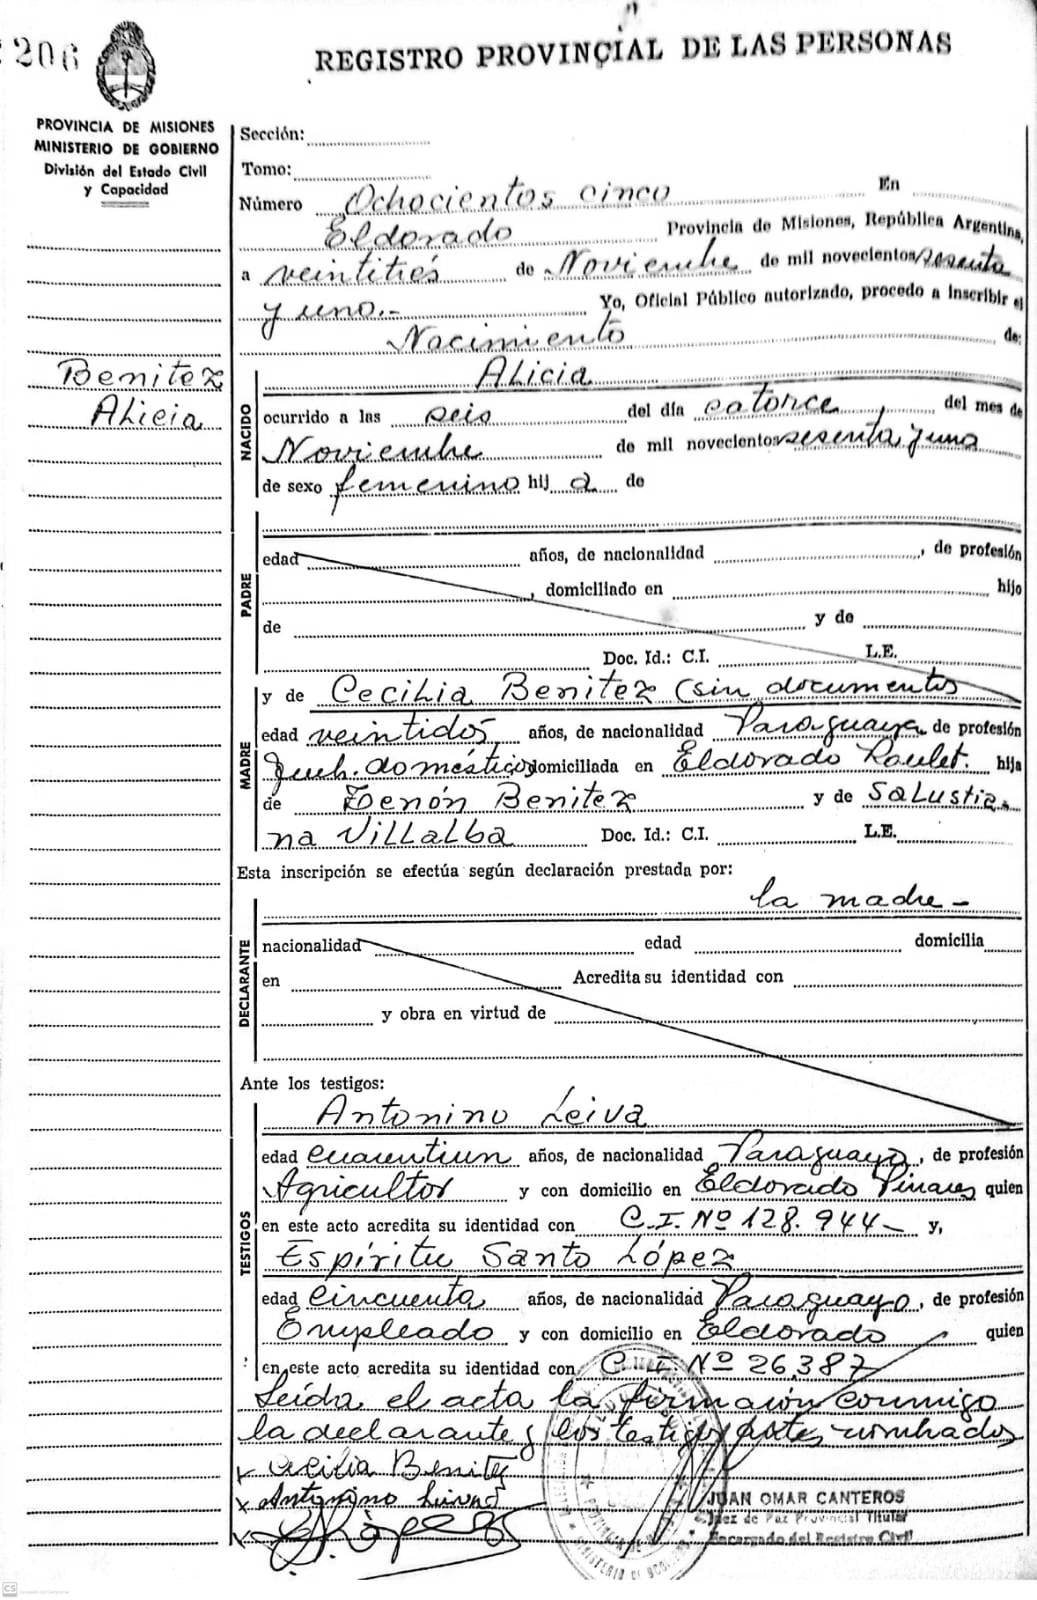 206
REGISTRO PROVINCIAL DE LAS PERSONAS
PROVINCIA DE MISIONES
MINISTERIO DE GOBIERNO
División del Estado Civil
y Capacidad
Benitez
Alicia
Sección:
Tomo:
Número Ochocientos cinco En
Eldorado Provincia de Misiones, República Argentina,
a veintitrés de Noviembre de mil novecientos sesenta
y uno.- Yo, Oficial Público autorizado, procedo a inscribir el
Nacimiento de:
NACIDO
Alicia
ocurrido a las seis del día catorce, del mes de
Noviembre de mil novecientos sesenta y uno
de sexo femenino hij a de
PADRE
edad años, de nacionalidad , de profesión
, domiciliado en hijo
de y de
Doc. Id.: C.I. L.E.
MADRE
y de Cecilia Benitez (sin documentos
edad veintidós años, de nacionalidad Paraguaya de profesión
domésticos domiciliada en Eldorado hija
de Zenón Benitez y de Salustia
na Villalba Doc. Id.: C.I. L.E.
Esta inscripción se efectúa según declaración prestada por:
DECLARANTE
la madre -
nacionalidad edad domicilia
en Acredita su identidad con
y obra en virtud de
Ante los testigos:
TESTIGOS
Antonino Leiva
edad cuarentiun años, de nacionalidad Paraguayo, de profesión
Agricultor y con domicilio en Eldorado Pinares quien
en este acto acredita su identidad con C.I. Nº 128.944- y,
Espíritu Santo López
edad cincuenta años, de nacionalidad Paraguayo, de profesión
Empleado y con domicilio en Eldorado quien
en este acto acredita su identidad con C.I. Nº 26,387
Leída el acta la firman conmigo
la declarante y los testigos antes nombrados
x Cecilia Benitez
x Antonino Leiva
x López
JUAN OMAR CANTEROS
Juez de Paz Provincial Titular
Encargado del Registro Civil
CS